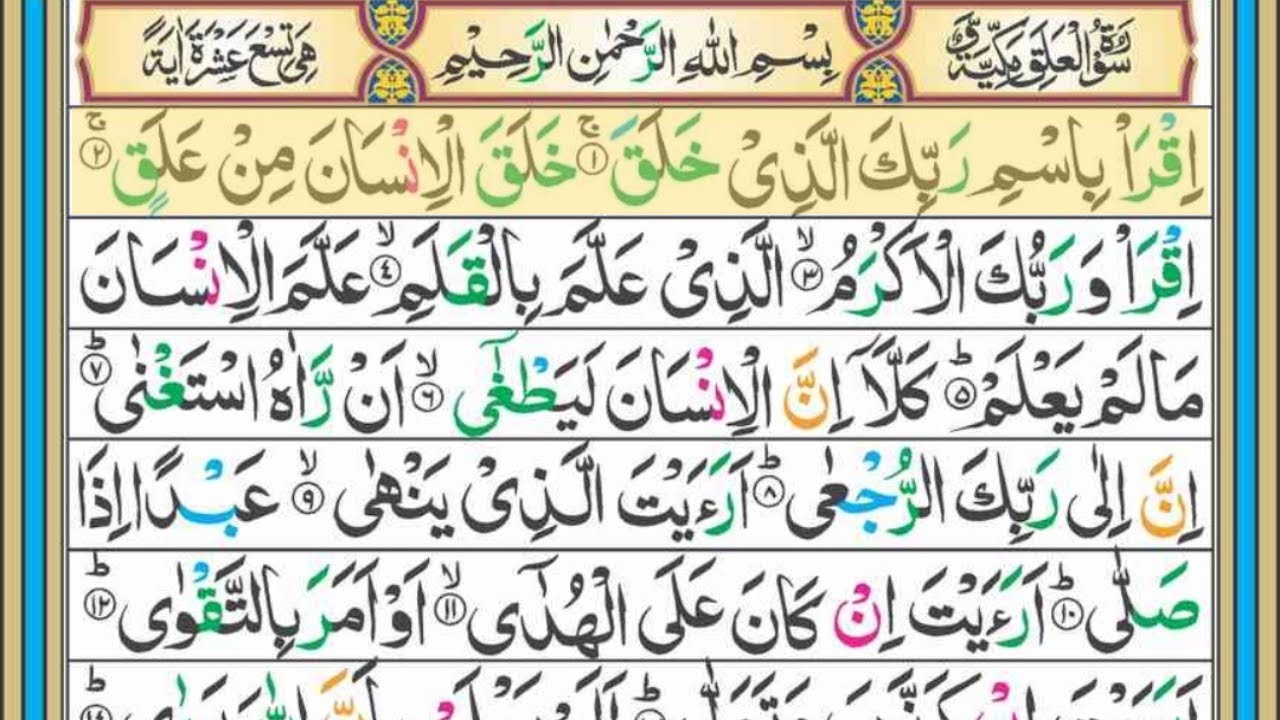 سورة العلق مكية بسم الله الرحمن الرحيم هي تسع عشرة اية
اِقْرَاْ بِاسْمِ رَبِّكَ الَّذِیْ خَلَقَ ۚ﴿۱﴾ خَلَقَ الْاِنْسَانَ مِنْ عَلَقٍ ۚ﴿۲﴾
اِقْرَاْ وَ رَبُّكَ الْاَكْرَمُ ۙ﴿۳﴾ الَّذِیْ عَلَّمَ بِالْقَلَمِ ۙ﴿۴﴾ عَلَّمَ الْاِنْسَانَ
مَا لَمْ یَعْلَمْ ؕ﴿۵﴾ كَلَّاۤ اِنَّ الْاِنْسَانَ لَیَطْغٰۤی ۙ﴿۶﴾ اَنْ رَّاٰهُ اسْتَغْنٰی ؕ﴿۷﴾
اِنَّ اِلٰی رَبِّكَ الرُّجْعٰی ؕ﴿۸﴾ اَرَءَیْتَ الَّذِیْ یَنْهٰی ۙ﴿۹﴾ عَبْدًا اِذَا
صَلّٰی ؕ﴿۱۰﴾ اَرَءَیْتَ اِنْ كَانَ عَلَی الْهُدٰۤی ۙ﴿۱۱﴾ اَوْ اَمَرَ بِالتَّقْوٰی ؕ﴿۱۲﴾